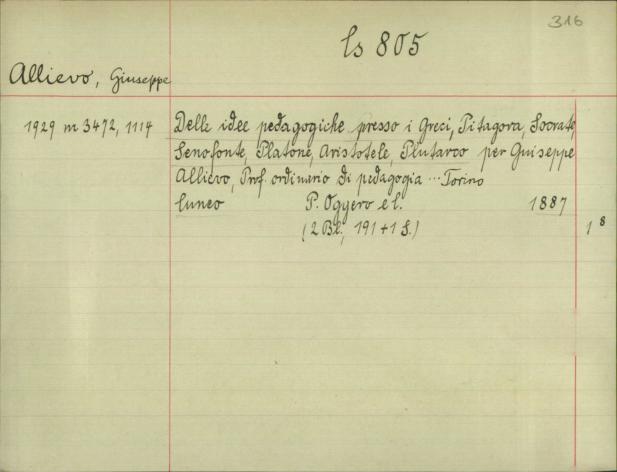 316
ls 805
Allievo, Giuseppe
1929 m 3472, 1114
Delle idee pedagogiche presso i Greci, Pitagora, Socrate,
Senofonte, Platone, Aristotele, Plutarco per Guiseppe
Allievo, Prof ordinario di pedagogia ... Torino
Cuneo P. Oggero e C. 1887
(2 Bl., 191 + 1 S.) 1 8